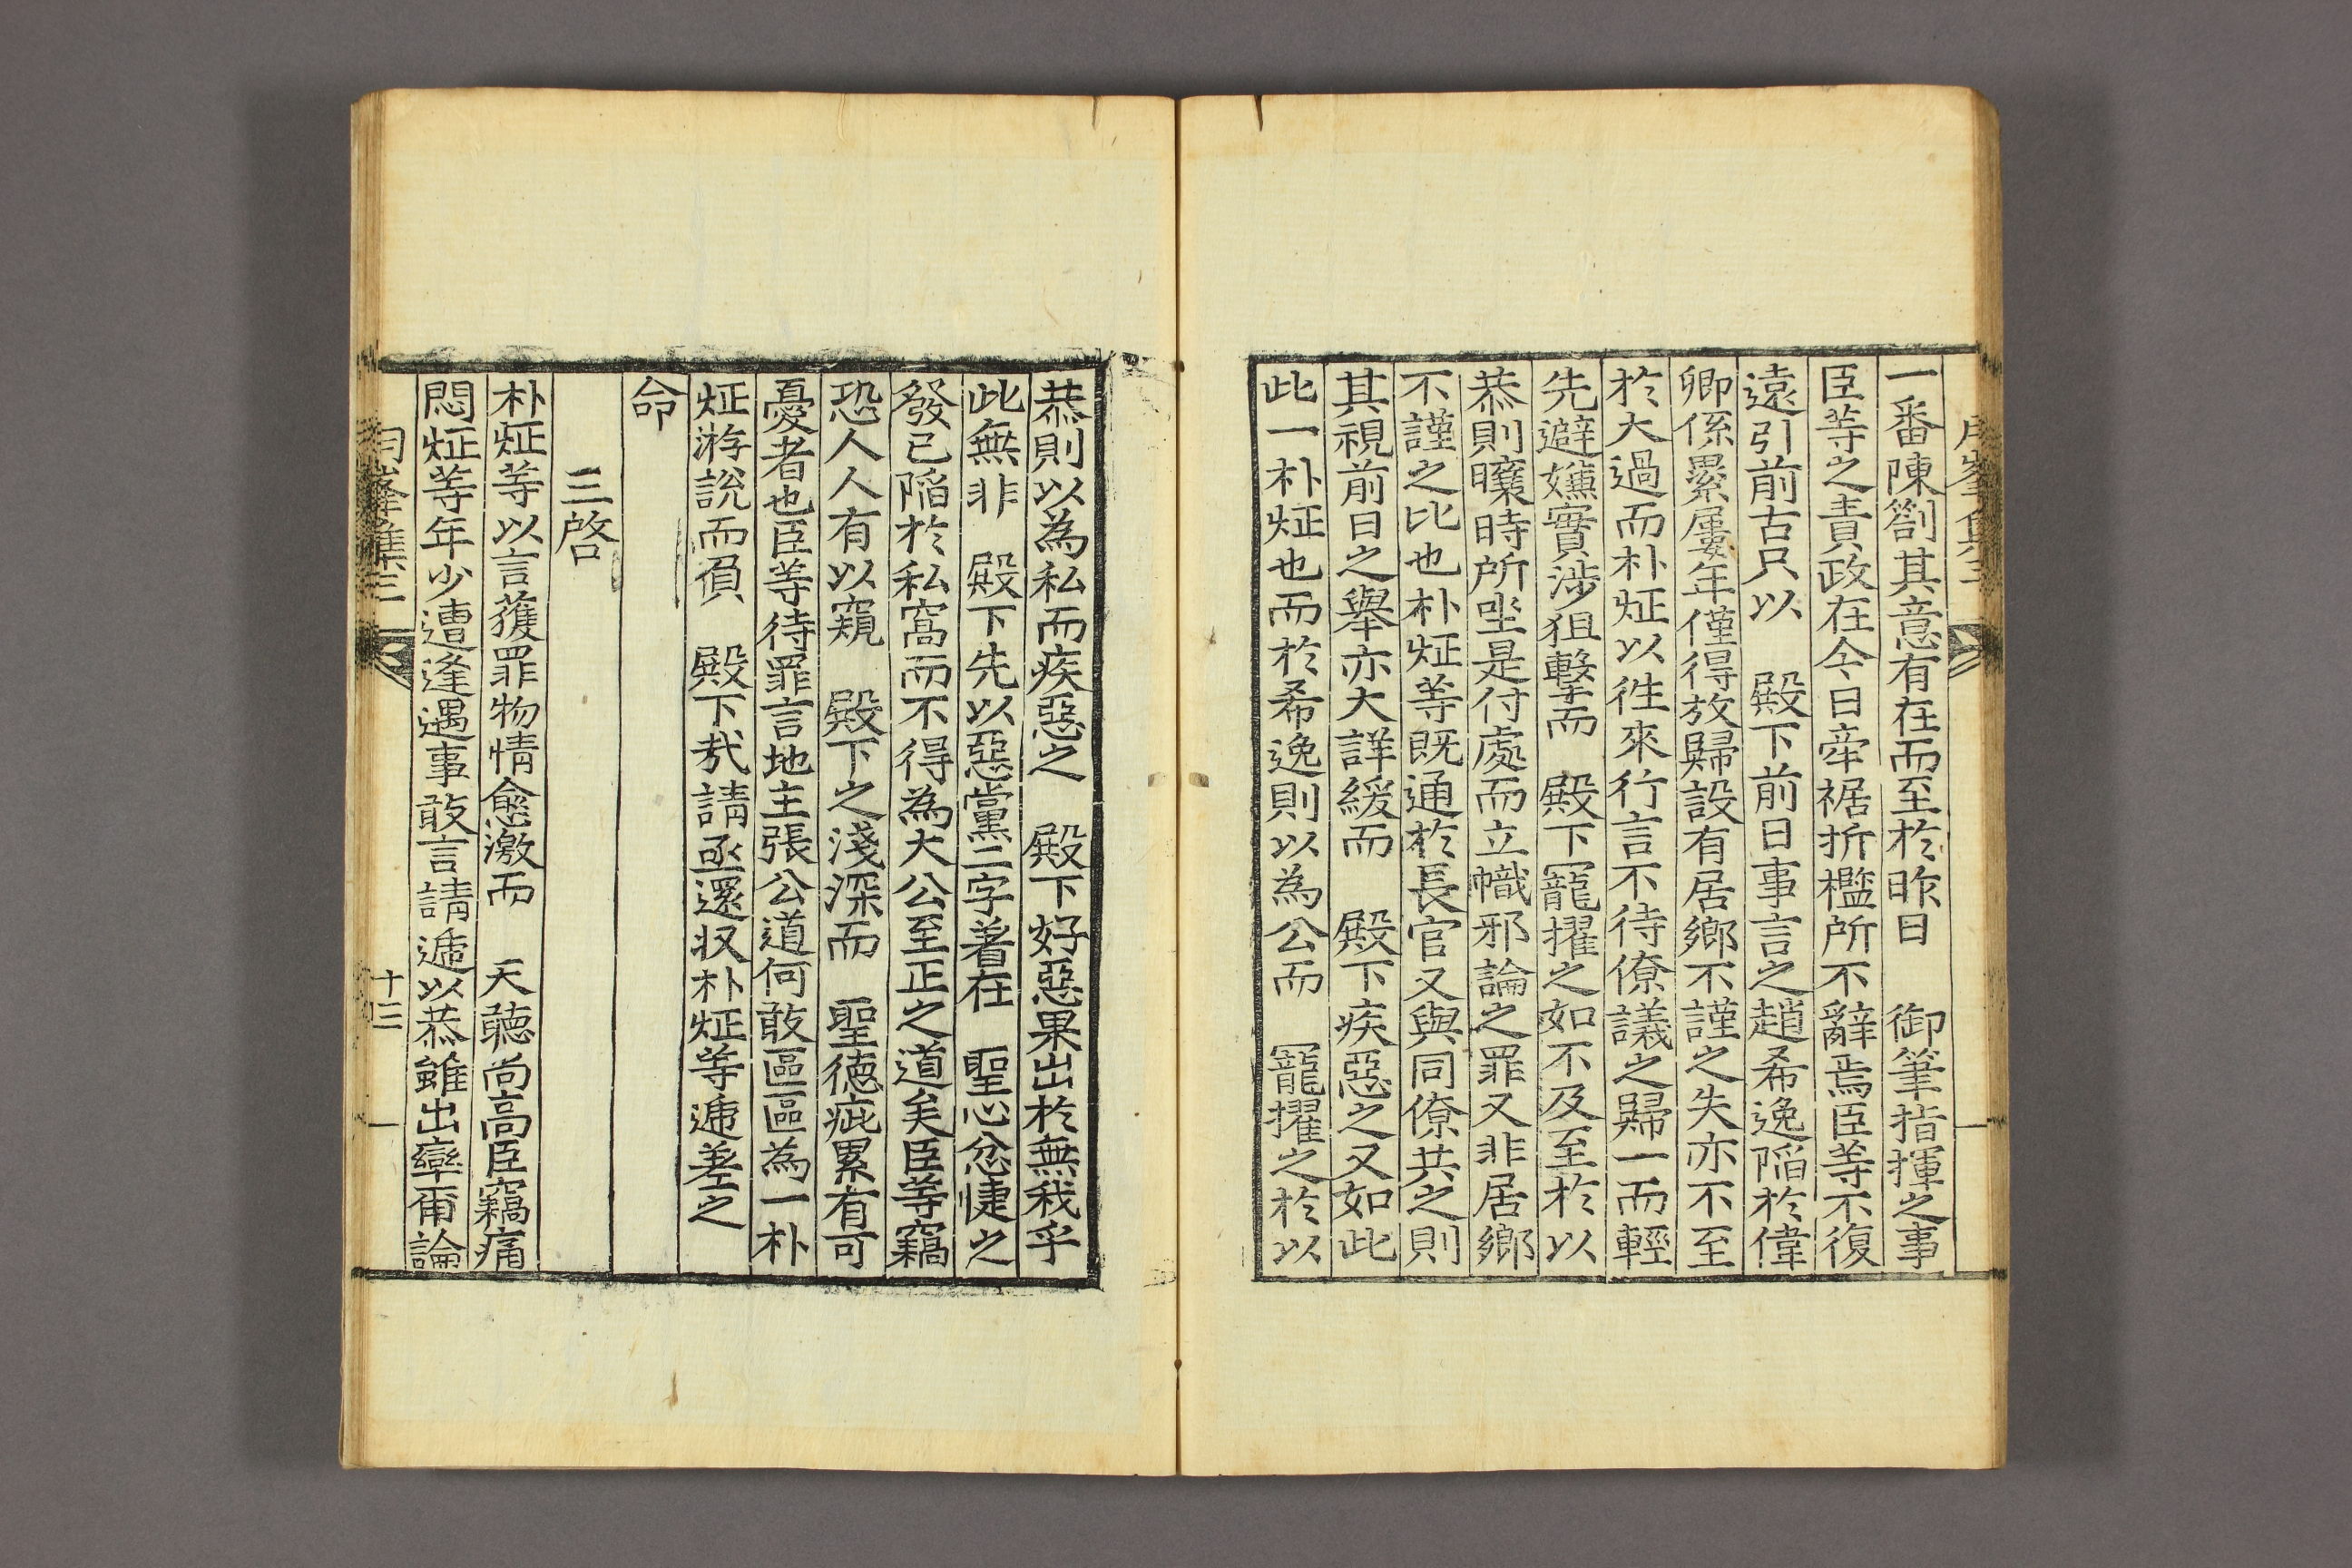 一番陳劄其意有在而至於昨日 御筆指揮之事
臣等之責政在今日牽裾折檻所不辭焉臣等不復
遠引前古只以 殿下前日事言之趙希逸陷於偉
卿係累屢年僅得放歸設有居鄉不謹之失亦不至
於大過而朴炡以徃來行言不待僚議之歸一而輕
先避嫌實涉狙擊而 殿下寵擢之如不及至於以
恭則曠時所坐是付處而立幟邪論之罪又非居鄉
不謹之比也朴炡等既通於長官又與同僚共之則
其視前日之舉亦大詳緩而 殿下疾惡之又如此
此一朴炡也而於希逸則以為公而 寵擢之於以
恭則以為私而疾惡之 殿下好惡果出於無我乎
此無非 殿下先以惡黨二字著在 聖心忿悽之
發已陷於私窩而不得為大公至正之道矣臣等竊
恐人人有以窺 殿下之淺深而 聖德疵累有可
憂者也臣等待罪言地主張公道何敢區區為一朴
炡游說而負 殿下㦲請亟還收朴炡等遞差之
命
三啓
朴炡等以言獲罪物情愈激而 天聽尚高臣竊痛
悶炡等年少遭逢遇事敢言請遞以恭雖出孿甭論
集三
十三